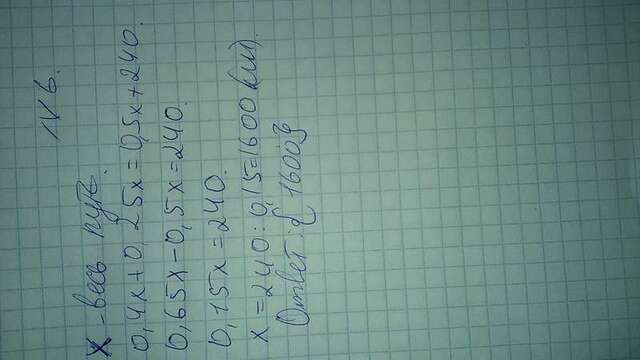 N 6.
x - весь путь.
0,4x+0,25x=0,5x+240.
0,65x-0,5x=240.
0,15x=240.
x=240:0,15=1600(км).
Ответ:{1600}